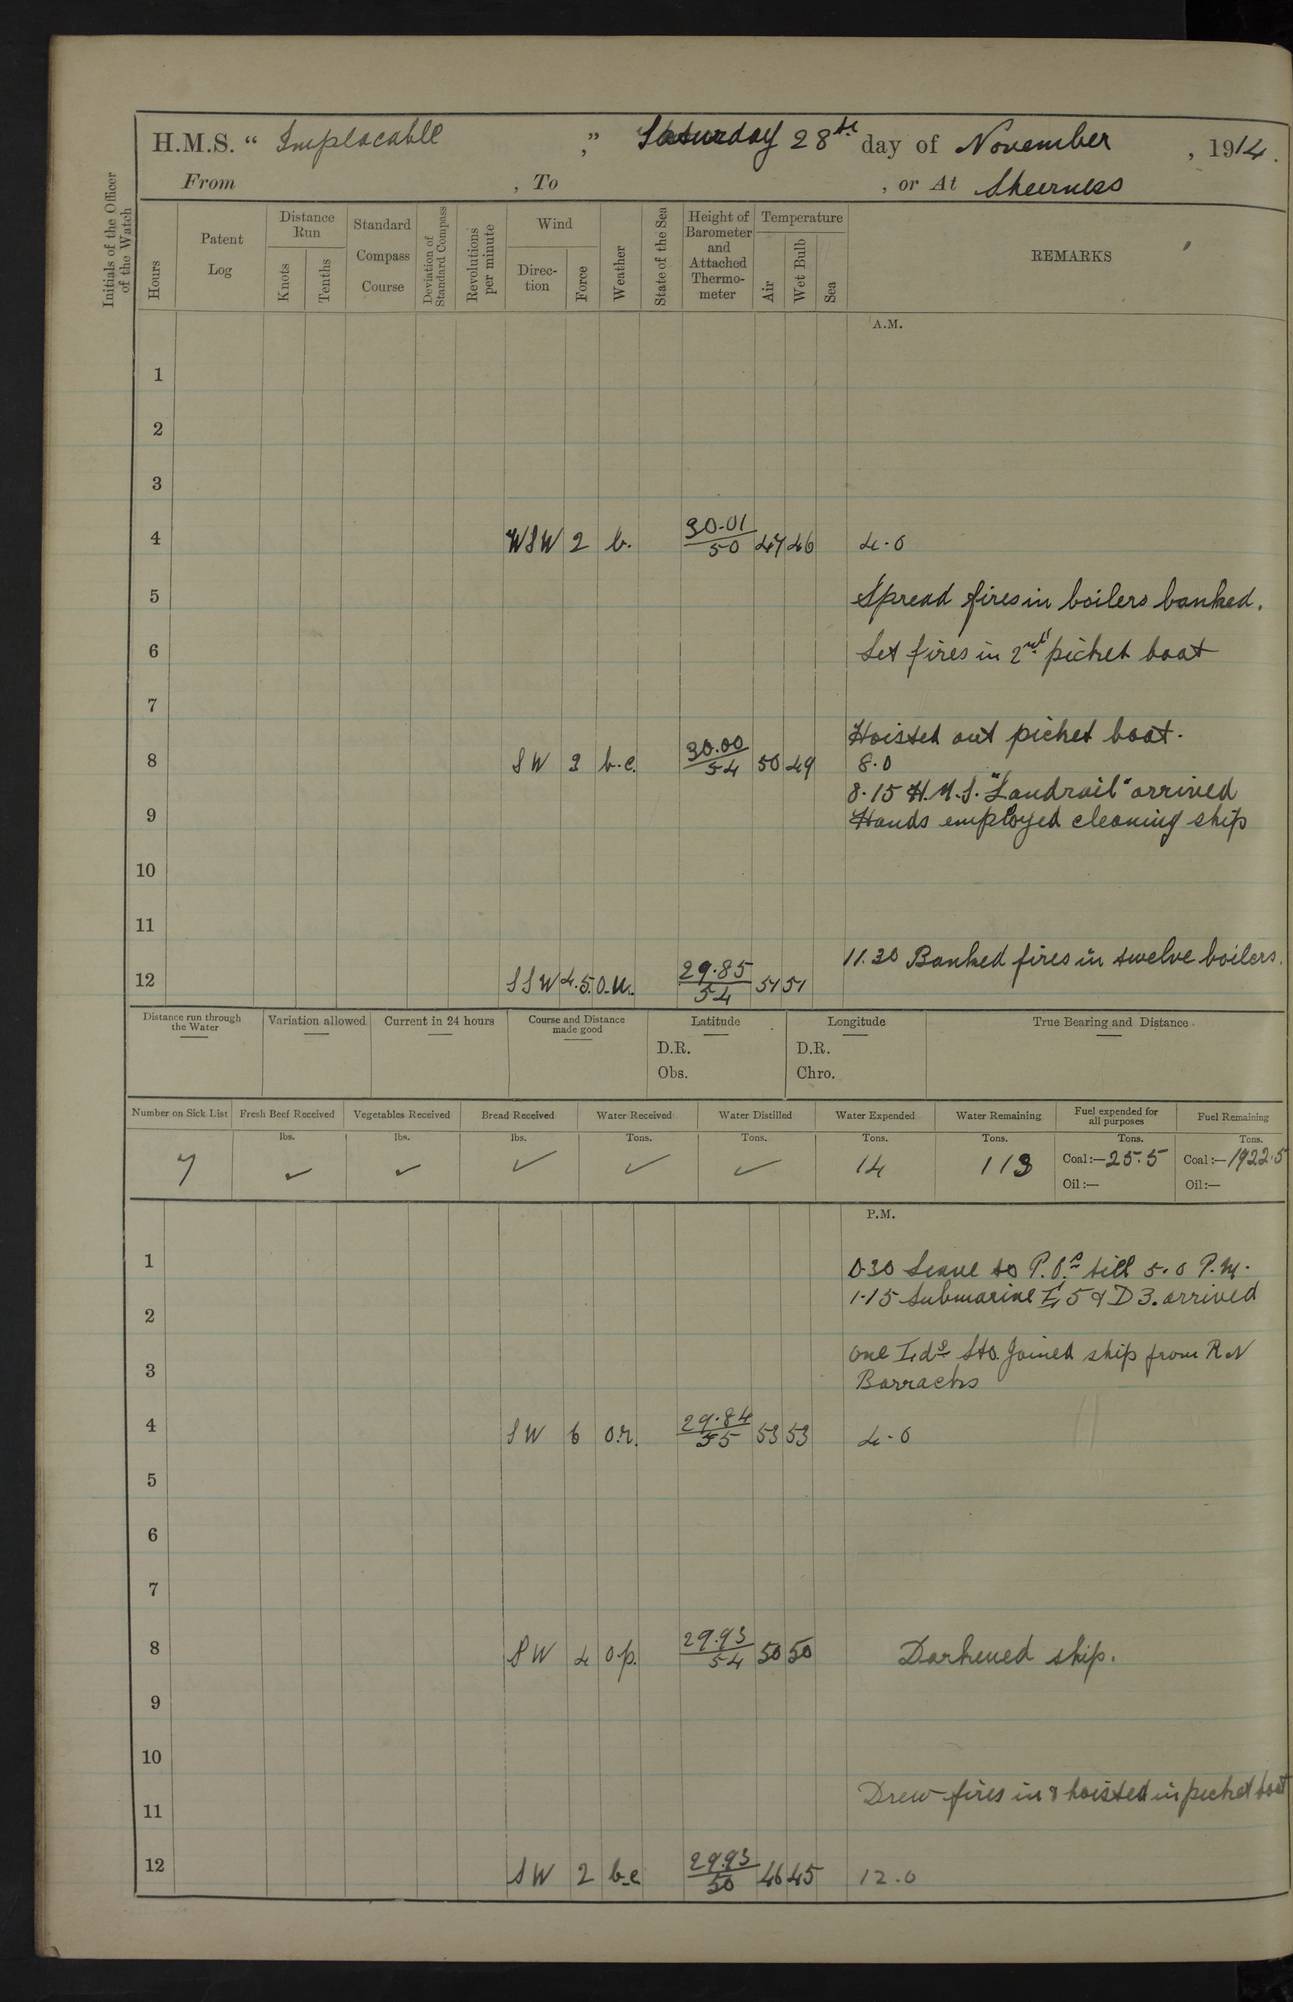 H.M.S. " Implacable ," Saturday 28th day of November , 1914.
From , To , or At Sheerness
Initials of the Officer of the Watch
Hours
Patent Log
Distance Run
Knots
Tenths
Standard Compass Course
Deviation of Standard Compass
Revolutions per minute
Wind
Direction
Force
Weather
State of the Sea
Height of Barometer and Attached Thermometer
Temperature
Air
Wet Bulb
Sea
REMARKS
A.M.
1
2
3
4 WSW 2 b. 30.01/50 47 46 4.0
5 Spread fires in boilers banked.
6 Set fires in 2nd picket boat
7
Hoisted out picket boat.
8 SW 3 b.c. 30.00/54 50 49 8.0
8.15 H.M.S. "Landrail" arrived
9 Hands employed cleaning ship
10
11
11.30 Banked fires in twelve boilers.
12 SSW 4.5 o.u. 29.85/54 51 51
Distance run through the Water
Variation allowed
Current in 24 hours
Course and Distance made good
Latitude
D.R.
Obs.
Longitude
D.R.
Chro.
True Bearing and Distance
Number on Sick List Fresh Beef Received Vegetables Received Bread Received Water Received Water Distilled Water Expended Water Remaining Fuel expended for all purposes Fuel Remaining
lbs. lbs. lbs. Tons. Tons. Tons. Tons. Tons. Tons.
7 ✓ ✓ ✓ ✓ ✓ 14 113 Coal:—25.5 Coal:—1922.5
Oil:— Oil:—
P.M.
1 0.30 Leave to P.O.s till 5.0 P.M.
1.15 Submarine E5 & D3. arrived
2
One Ldg Sto. Joined ship from RN
3 Barracks
4 SW 6 o.r. 29.84/55 53 53 4.0
5
6
7
8 SW 4 o.p. 29.93/54 50 50 Darkened ship.
9
10
Drew fires in & hoisted in picket boat
11
12 SW 2 b.c 29.93/50 46 45 12.0